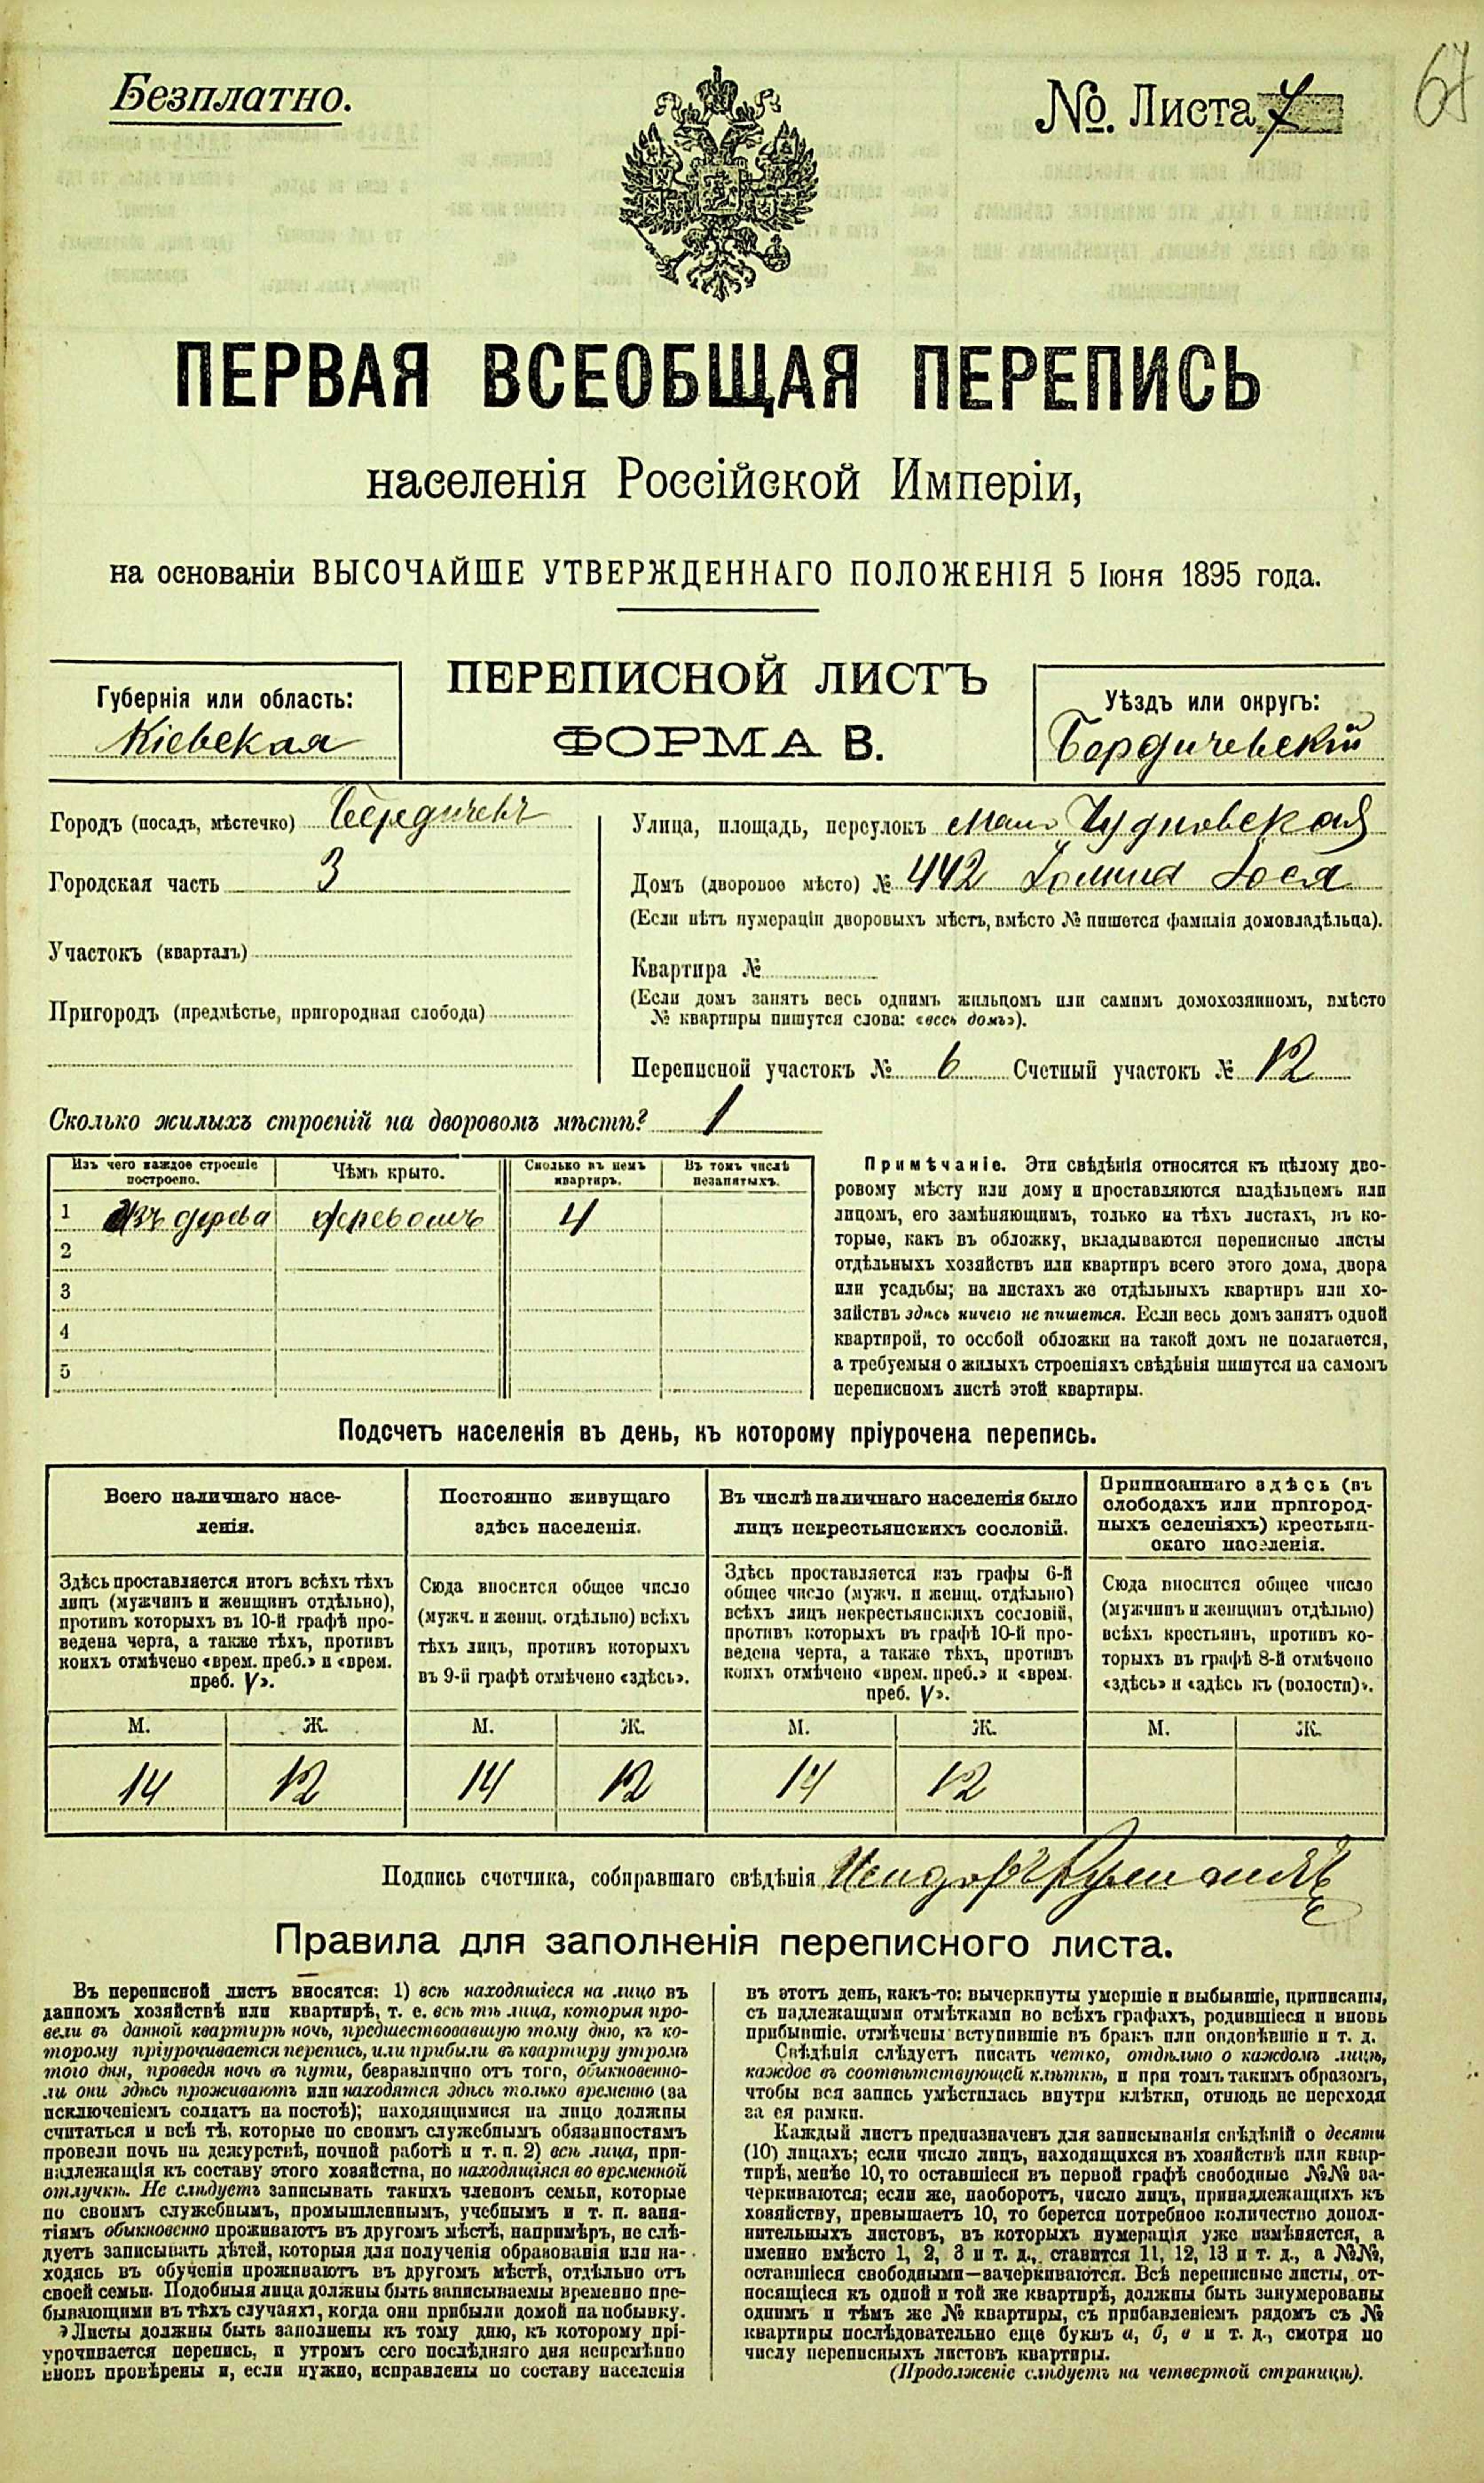 Безплатно.
№. Листа 7
67
ПЕРВАЯ ВСЕОБЩАЯ ПЕРЕПИСЬ
населенія Россійской Имперіи,
на основаніи ВЫСОЧАЙШЕ УТВЕРЖДЕННАГО ПОЛОЖЕНІЯ 5 Іюня 1895 года.
Губернія или область:
Кіевская
ПЕРЕПИСНОЙ ЛИСТЪ
ФОРМА В.
Уѣздъ или округъ:
Бердичевскій
Городъ (посадъ, мѣстечко) Бердичевъ
Городская часть 3
Участокъ (кварталъ)
Пригородъ (предмѣстье, пригородная слобода)
Улица, площадь, переулокъ Мало Чудновская
Домъ (дворовое мѣсто) № 442
(Если нѣтъ нумераціи дворовыхъ мѣстъ, вмѣсто № пишется фамилія домовладѣльца).
Квартира №
(Если домъ занятъ весь однимъ жильцомъ или самимъ домохозяиномъ, вмѣсто
№ квартиры пишутся слова: «весь домъ»).
Переписной участокъ № 6 Счетный участокъ № 12
Сколько жилыхъ строеній на дворовомъ мѣстѣ? 1
Изъ чего каждое строеніе
построено.
Чѣмъ крыто.
Сколько въ немъ
квартиръ.
Въ томъ числѣ
незанятыхъ.
1 Изъ дерева деревомъ 4
2
3
4
5
Примѣчаніе. Эти свѣдѣнія относятся къ цѣлому дво-
ровому мѣсту или дому и проставляются владѣльцемъ или
лицомъ, его замѣняющимъ, только на тѣхъ листахъ, въ ко-
торые, какъ въ обложку, вкладываются переписные листы
отдѣльныхъ хозяйствъ или квартиръ всего этого дома, двора
или усадьбы; на листахъ же отдѣльныхъ квартиръ или хо-
зяйствъ здѣсь ничего не пишется. Если весь домъ занятъ одной
квартирой, то особой обложки на такой домъ не полагается,
а требуемыя о жилыхъ строеніяхъ свѣдѣнія пишутся на самомъ
переписномъ листѣ этой квартиры.
Подсчетъ населенія въ день, къ которому пріурочена перепись.
Всего наличнаго насе-
ленія.
Постоянно живущаго
здѣсь населенія.
Въ числѣ наличнаго населенія было
лицъ некрестьянскихъ сословій.
Приписаннаго здѣсь (въ
слободахъ или пригород-
ныхъ селеніяхъ) крестьян-
скаго населенія.
Здѣсь проставляется итогъ всѣхъ тѣхъ
лицъ (мужчинъ и женщинъ отдѣльно),
противъ которыхъ въ 10-й графѣ про-
ведена черта, а также тѣхъ, противъ
коихъ отмѣчено «врем. преб.» и «врем.
преб. V».
Сюда вносится общее число
(мужч. и женщ. отдѣльно) всѣхъ
тѣхъ лицъ, противъ которыхъ
въ 9-й графѣ отмѣчено «здѣсь».
Здѣсь проставляется изъ графы 6-й
общее число (мужч. и женщ. отдѣльно)
всѣхъ лицъ некрестьянскихъ сословій,
противъ которыхъ въ графѣ 10-й про-
ведена черта, а также тѣхъ, противъ
коихъ отмѣчено «врем. преб.» и «врем.
преб. V».
Сюда вносится общее число
(мужчинъ и женщинъ отдѣльно)
всѣхъ крестьянъ, противъ ко-
торыхъ въ графѣ 8-й отмѣчено
«здѣсь» и «здѣсь къ (волости)».
М. Ж. М. Ж. М. Ж. М. Ж.
14 12 14 12 14 12
Подпись счетчика, собиравшаго свѣдѣнія
Правила для заполненія переписного листа.
Въ переписной листъ вносятся: 1) всѣ находящіеся на лицо въ
данномъ хозяйствѣ или квартирѣ, т. е. всѣ тѣ лица, которыя про-
вели въ данной квартирѣ ночь, предшествовавшую тому дню, къ ко-
торому пріурочивается перепись, или прибыли въ квартиру утромъ
того дня, проведя ночь въ пути, безразлично отъ того, обыкновенно-
ли они здѣсь проживаютъ или находятся здѣсь только временно (за
исключеніемъ солдатъ на постоѣ); находящимися на лицо должны
считаться и всѣ тѣ, которые по своимъ служебнымъ обязанностямъ
провели ночь на дежурствѣ, ночной работѣ и т. п. 2) всѣ лица, при-
надлежащія къ составу этого хозяйства, но находящіяся во временной
отлучкѣ. Не слѣдуетъ записывать такихъ членовъ семьи, которые
по своимъ служебнымъ, промышленнымъ, учебнымъ и т. п. заня-
тіямъ обыкновенно проживаютъ въ другомъ мѣстѣ, напримѣръ, не слѣ-
дуетъ записывать дѣтей, которыя для полученія образованія или на-
ходясь въ обученіи проживаютъ въ другомъ мѣстѣ, отдѣльно отъ
своей семьи. Подобныя лица должны быть записываемы временно пре-
бывающими въ тѣхъ случаяхъ, когда они прибыли домой на побывку.
Листы должны быть заполнены къ тому дню, къ которому прі-
урочивается перепись, и утромъ сего послѣдняго дня непремѣнно
вновь провѣрены и, если нужно, исправлены по составу населенія
въ этотъ день, какъ-то: вычеркнуты умершіе и выбывшіе, приписаны,
съ надлежащими отмѣтками во всѣхъ графахъ, родившіеся и вновь
прибывшіе, отмѣчены вступившіе въ бракъ или овдовѣвшіе и т. д.
Свѣдѣнія слѣдуетъ писать четко, отдѣльно о каждомъ лицѣ,
каждое въ соотвѣтствующей клѣткѣ, и при томъ такимъ образомъ,
чтобы вся запись умѣстилась внутри клѣтки, отнюдь не переходя
за ея рамки.
Каждый листъ предназначенъ для записыванія свѣдѣній о десяти
(10) лицахъ; если число лицъ, находящихся въ хозяйствѣ или квар-
тирѣ, менѣе 10, то оставшіеся въ первой графѣ свободные №№ за-
черкиваются; если же, наоборотъ, число лицъ, принадлежащихъ къ
хозяйству, превышаетъ 10, то берется потребное количество допол-
нительныхъ листовъ, въ которыхъ нумерація уже измѣняется, а
именно вмѣсто 1, 2, 3 и т. д., ставится 11, 12, 13 и т. д., а №№,
оставшіеся свободными—зачеркиваются. Всѣ переписные листы, от-
носящіеся къ одной и той же квартирѣ, должны быть занумерованы
однимъ и тѣмъ же № квартиры, съ прибавленіемъ рядомъ съ №
квартиры послѣдовательно еще буквъ а, б, в и т. д., смотря по
числу переписныхъ листовъ квартиры.
(Продолженіе слѣдуетъ на четвертой страницѣ).